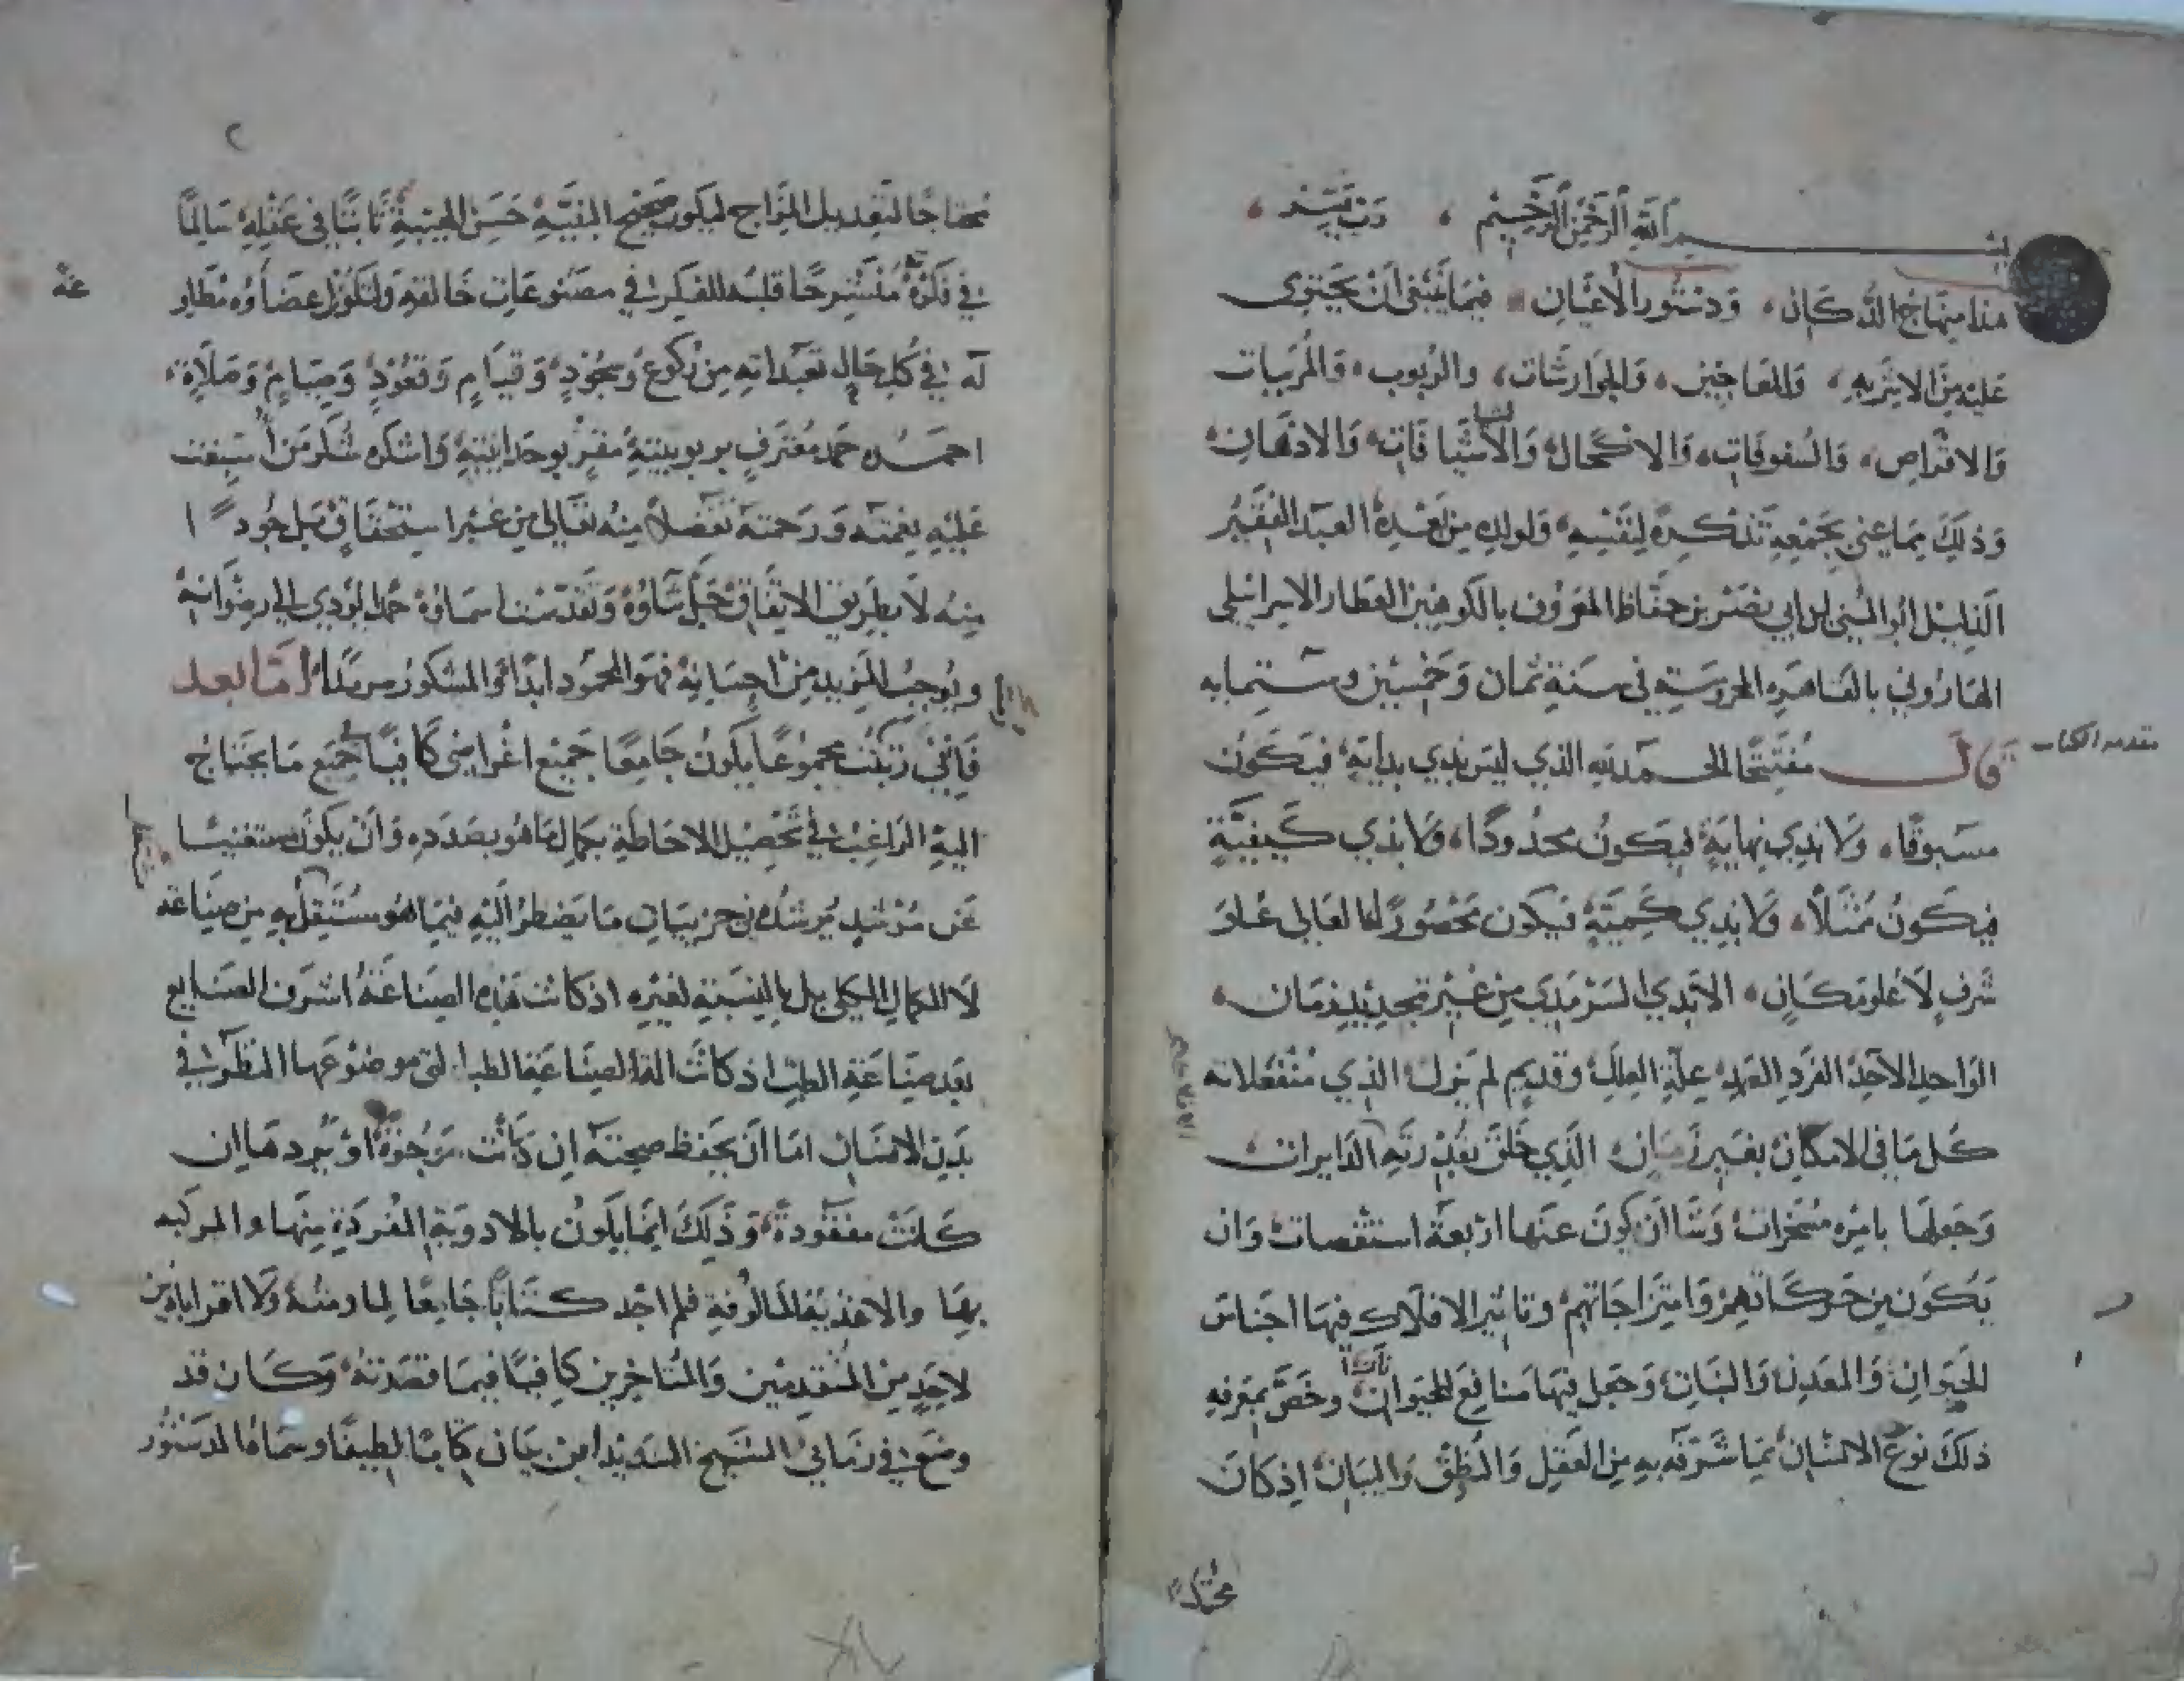 بسم الله الرحمن الرحيم ، رب يسر ،
هذا منهاج الدكان ، ودستور الاعيان فيما ينبغى أن يحتوى
عليه من الاشربه ، والمعاجين ، والجوارشات ، والربوب ، والمربيات
والاقراص ، والسفوفات ، والاكحال ، والأشيافات ، والادهان ،
وذلك مما عنى بجمعه تذكرة لنفسه ، ولولده من بعده العبد الفقير
الذليل ابو المنى ابن ابي نصر بن حفاظ المعروف بالكوهين العطار الاسرائيلي
الهاروني بالقاهره المحروسة في سنة ثمان وخمسين وستمايه
مقدمه الكتاب
قال مفتتحا الحمد لله الذي ليس بذي بداية ، فيكون
مسبوقا ، ولا بذي نهاية فيكون محدودا ، ولا بذي كيفية
فيكون ممثلا ، ولا بذي كمية فيكون محصورا تعالى علو
شرف لا علو مكان ، الابدي السرمدي من غير تحديد زمان ،
الواحد الاحد الفرد علة العلل وقديم لم يزل الذي منفعلاته
كل ما في الامكان بغير زمان الذي خلق بقدرته الدايرات
وجعلها بامره مسخرات وشا ان يكون عنها اربعة استقصات وان
يكون من حركاتهم وامتزاجاتهم وتاثير الافلاك فيها اجناس
الحيوان والمعدن والنبات وجعل فيها منافع للحيوان وخص بمعرفة
ذلك نوع الانسان بما شرفه به من العقل والنطق والبيان اذ كان
محتاجا
محتاجا لتعديل المزاج ليكون صحيح البنية حسن الهيئة ثابتا في عقله سالما
في فكره منشرحا قلبه للفكر في مصنوعات خالقه ولتكون اعضاؤه مطاو
عة
له في كل حال تعبداته من ركوع وسجود وقيام وقعود وصيام وصلاة ،
احمده حمد معترف بربوبيته مقر بوحدانيته واشكره شكر من أسبغت
عليه نعمته ورحمته تفضلا منه تعالى من غير استحقاق بل جودا
منه لا بطريق الاتفاق جل ثناؤه وتقدست اسماؤه حمدا يؤدي الى رضوانه
ويوجب المزيد من احسانه فهو المحمود ابدا والمشكور سرمدا أما بعد
فانني رتبت مجموعا يكون جامعا جميع اغراضي كافيا جميع ما يحتاج
اليه الراغب في تحصيل الاحاطة بكمال ما هو بصدده وان يكون مستغنيا
عن مرشد يرشده في جزييات ما يضطر اليه فيما هو مستقل به من صناعة
لا الكمال الكلي بل بالنسبة لغيره اذ كانت هذه الصناعة اشرف الصنايع
بعد صناعة الطب اذ كانت الة لصناعة الطب التي موضوعها النظر في
بدن الانسان اما ان يحفظ صحته ان كانت موجودة او يردها ان
كانت مفقودة وذلك انما يكون بالادوية المفردة منها والمركبه
بها والاغذية المالوفة فلم اجد كتابا جامعا لما رمته ولا اقراباذين
لاحد من المتقدمين والمتاخرين كافيا فيما قصدته ، وكان قد
وضع في زماني الشيخ السديد ابن بيان كتابا لطيفا وسماه الدستور